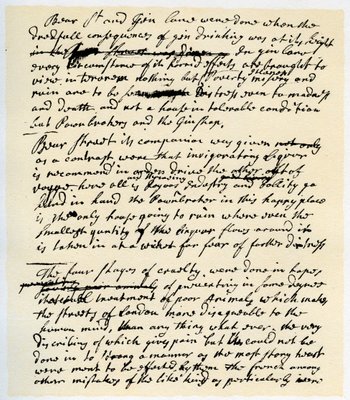 Beer St and Gin Lane were done when the
dreadfull consequences of gin drinking was at its hight
in Gin Lane
every Circumstance of its horrid effects are brought to
view in terorem nothing but Poverty misery and
ruin are to be Distress even to madness
and death and not a house in tolerable condition
but Pawnbrokers and the Gin shop.
Beer Street its companion was given not only
as a contrast were that invigorating liquor
is recommend in order drive the other out of
vogue here all is Joyous Industry and Jollity go
hand in hand the Pawnbroker in this happy place
is the only house going to ruin where even the
smallest quntity of the liquor flows around it
is taken in at a wicket for fear of further distress
The four stages of cruelty. were done in hopes
of preventing in some degree
that cruel treatment of poor Animals which makes
the streets of London more disagreable to the
human mind, than any thing what ever. the very
discribing of which gives pain but it could not be
done in to strong a manner as the most stony heart
were ment to be effected by them the french among
other mistakes of the like kind as particularly were